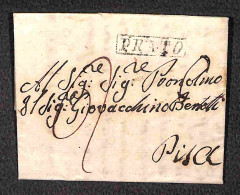 PRATO
All Sig:re Sig:re Pron Colmo
Il Sig:re Giovacchino Benelli
Pisa